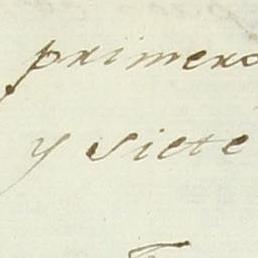 primero
y siete